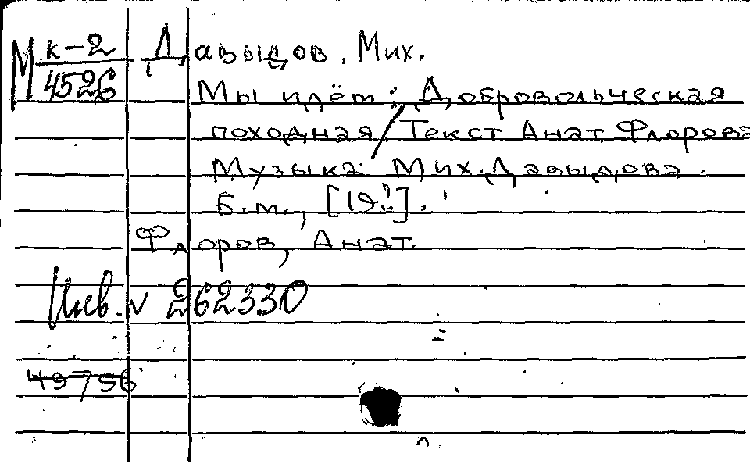 М к-2 Давыдов, Мих.
4526 Мы идём: Добровольческая
походная / Текст Анат. Флорова
Музыка: Мих. Давыдова.
Б.м., [19..].
Флоров, Анат.
Инв. № 262330
49756